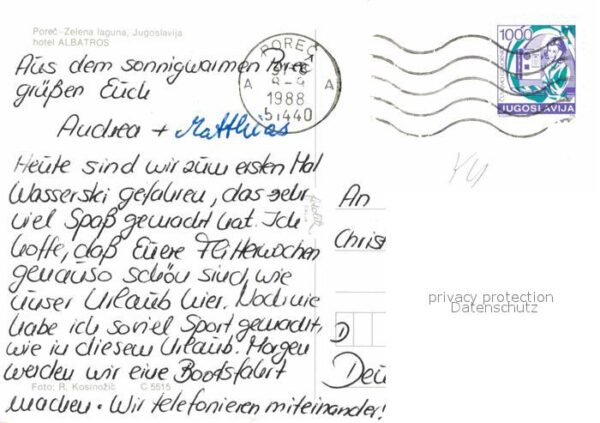 Poreč-Zelena laguna, Jugoslavija
hotel ALBATROS
Aus dem sonnigwarmen Poreč
grüßen Euch
Andrea + Matthias
Heute sind wir zum ersten Mal
Wasserski gefahren, das sehr
viel Spaß gemacht hat. Ich
hoffe, daß Euere Flitterwochen
genauso schön sind, wie
unser Urlaub hier. Noch nie
habe ich soviel Sport gemacht,
wie in diesem Urlaub. Morgen
werden wir eine Bootsfahrt
machen. Wir telefonieren miteinander!
Foto: R. Kosinožić C 5515
POREČ
8-9
A A
1988
51440
1000
JUGOSLAVIJA
An
Christ
D
Deu
privacy protection
Datenschutz